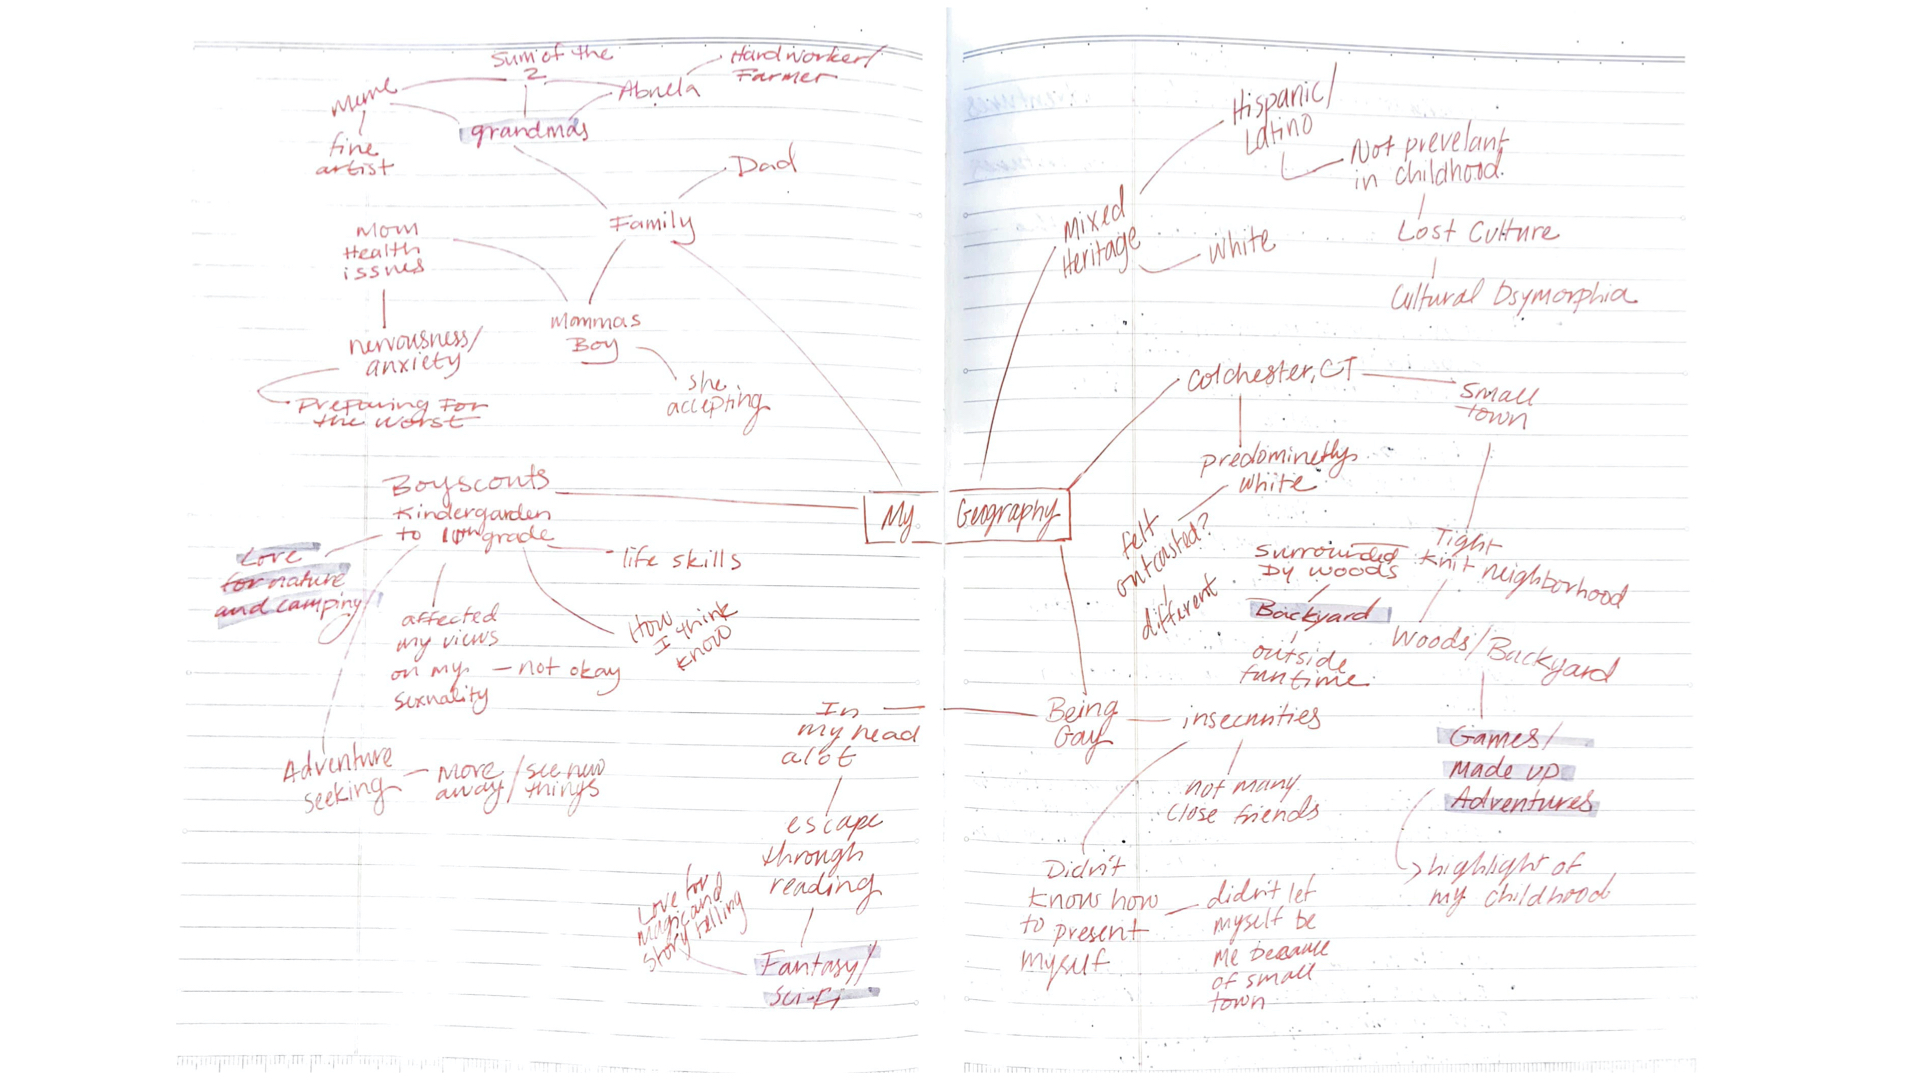 Sum of the
2
Meme
Abuela
Hardworker/
Farmer
grandmas
fine
artist
Dad
Family
Mom
Health
issues
Mommas
Boy
nervousness/
anxiety
she
accepting
Preparing For
the worst
Boyscouts
Kindergarden
to 10th grade
Love
for nature
and camping
life skills
affected
my views
on my
sexuality
not okay
How
I think
know
Adventure
seeking
More
away
/see new
things
In
my head
alot
escape
through
reading
Love for
Magic and
story telling
Fantasy/
Sci-Fi
My Geography
Mixed
Heritage
Hispanic/
Latino
Not prevelant
in childhood.
Lost Culture
Cultural Dsymorphia
White
Colchester, CT
Small
town
predominetly
white
felt
outcasted?
different
Tight
knit neighborhood
Surrounded
by woods
Backyard
outside
funtime
Woods/Backyard
Games/
Made up
Adventures
highlight of
my childhood
Being
Gay
insecurities
not many
close friends
Didn't
know how
to present
myself
didn't let
myself be
me because
of small
town